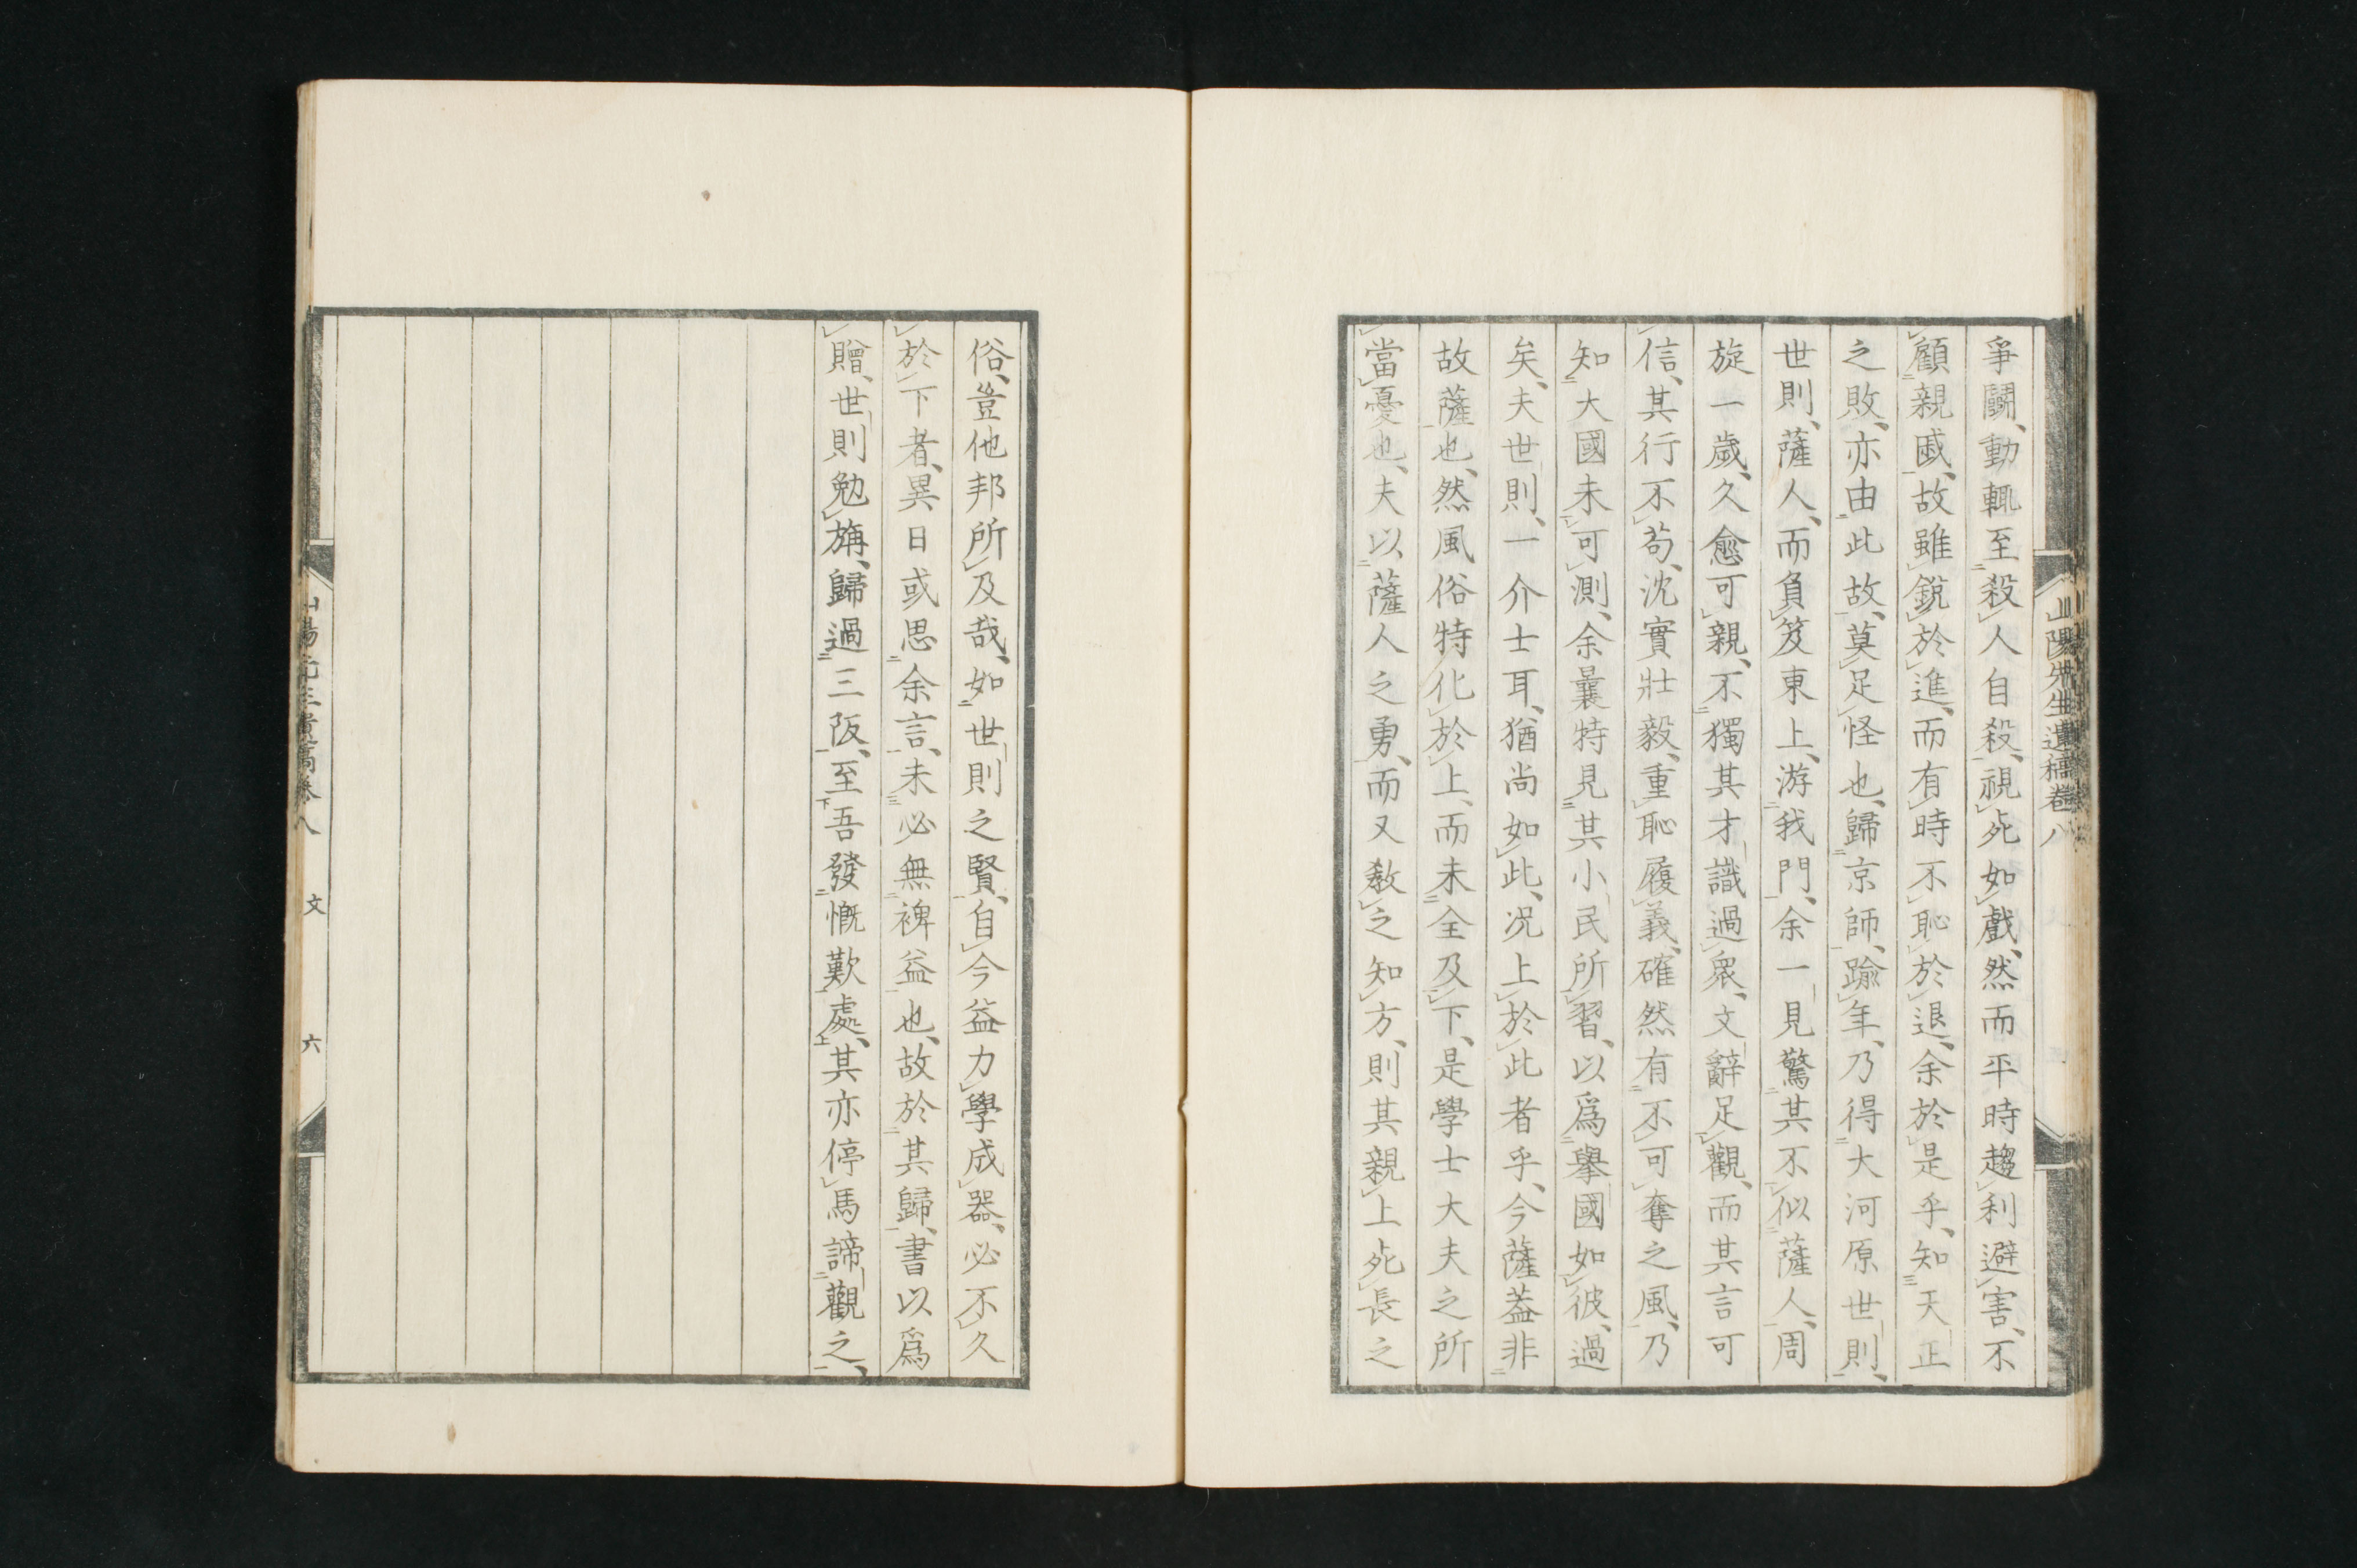 山陽先生遺稿卷八
爭鬪、動輒至殺人自殺、視死如戲、然而平時趨利避害、不
顧親戚、故雖銳於進、而有時不恥於退、余於是乎、知天正
之敗、亦由此故、莫足怪也、歸京師、踰年、乃得大河原世則、
世則、薩人、而負笈東上、游我門、余一見驚其不似薩人、周
旋一歲、久愈可親、不獨其才識過衆、文辭足觀、而其言可
信、其行不苟、沈實壯毅、重恥履義、確然有不可奪之風、乃
知大國未可測、余曩特見其小民所習、以爲擧國如彼、過
矣、夫世則、一介士耳、猶尚如此、况上於此者乎、今薩蓋非
故薩也、然風俗特化於上、而未全及下、是學士大夫之所
當憂也、夫以薩人之勇、而又敎之知方、則其親上死長之
俗、豈他邦所及哉、如世則之賢、自今益力學成器、必不久
於下者、異日或思余言、未必無裨益也、故於其歸、書以爲
贈、世則勉旃、歸過三阪、至吾發慨歎處、其亦停馬諦觀之、
山陽先生遺稿卷八 文 六